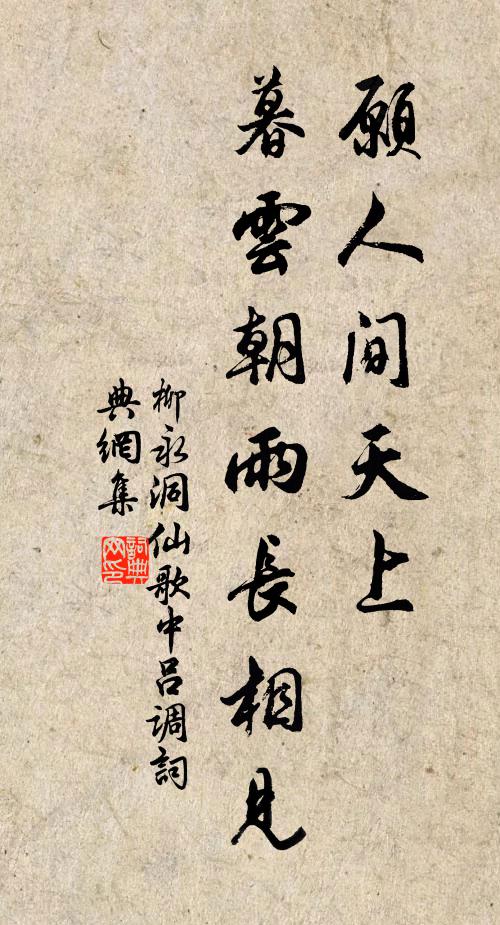 願人间天上
暮雲朝雨長相見
柳永洞仙歌中呂调詞
典網集
詞典网印